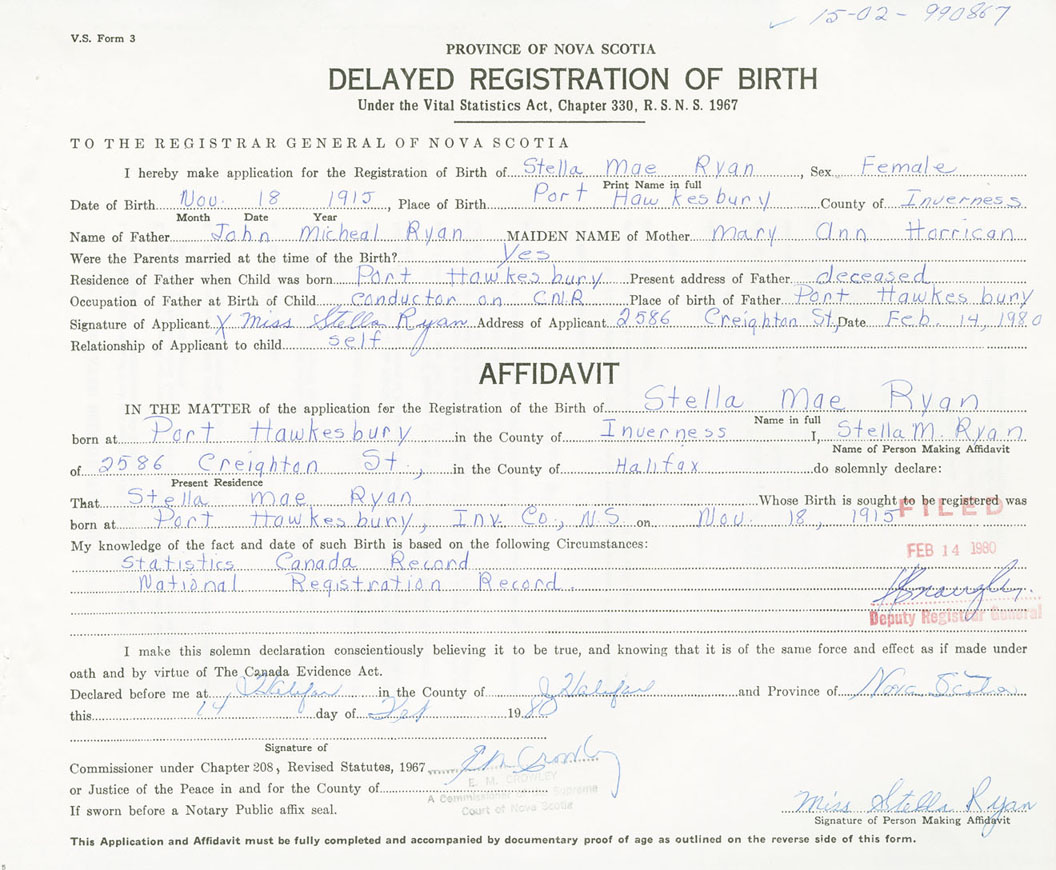 15-02-990867
V.S. Form 3
PROVINCE OF NOVA SCOTIA
DELAYED REGISTRATION OF BIRTH
Under the Vital Statistics Act, Chapter 330, R.S.N.S. 1967
TO THE REGISTRAR GENERAL OF NOVA SCOTIA
I hereby make application for the Registration of Birth of Stella Mae Ryan, Sex Female
Print Name in full
Date of Birth Nov. 18 1915, Place of Birth Port Hawkesbury County of Inverness
Month Date Year
Name of Father John Micheal Ryan MAIDEN NAME of Mother Mary Ann Horrican
Were the Parents married at the time of the Birth? Yes
Residence of Father when Child was born Port Hawkesbury Present address of Father deceased
Occupation of Father at Birth of Child conductor on CNR Place of birth of Father Port Hawkesbury
Signature of Applicant X Miss Stella Ryan Address of Applicant 2586 Creighton St, Date Feb. 14, 1980
Relationship of Applicant to child self
AFFIDAVIT
IN THE MATTER of the application for the Registration of the Birth of Stella Mae Ryan
Name in full
born at Port Hawkesbury in the County of Inverness I, Stella M. Ryan
Name of Person Making Affidavit
of 2586 Creighton St., in the County of Halifax do solemnly declare:
Present Residence
That Stella Mae Ryan Whose Birth is sought to be registered was
born at Port Hawkesbury, Inv. Co., N.S on Nov. 18, 1915
FILED
My knowledge of the fact and date of such Birth is based on the following Circumstances:
FEB 14 1980
Statistics Canada Record
National Registration Record.
Deputy Registrar General
I make this solemn declaration conscientiously believing it to be true, and knowing that it is of the same force and effect as if made under
oath and by virtue of The Canada Evidence Act.
Declared before me at Halifax in the County of Halifax and Province of Nova Scotia
this 14 day of Feb 1980
Signature of
Commissioner under Chapter 208, Revised Statutes, 1967 E M Crowley
E. M. CROWLEY
or Justice of the Peace in and for the County of
A Commissioner of the Supreme
Court of Nova Scotia
If sworn before a Notary Public affix seal.
Miss Stella Ryan
Signature of Person Making Affidavit
This Application and Affidavit must be fully completed and accompanied by documentary proof of age as outlined on the reverse side of this form.